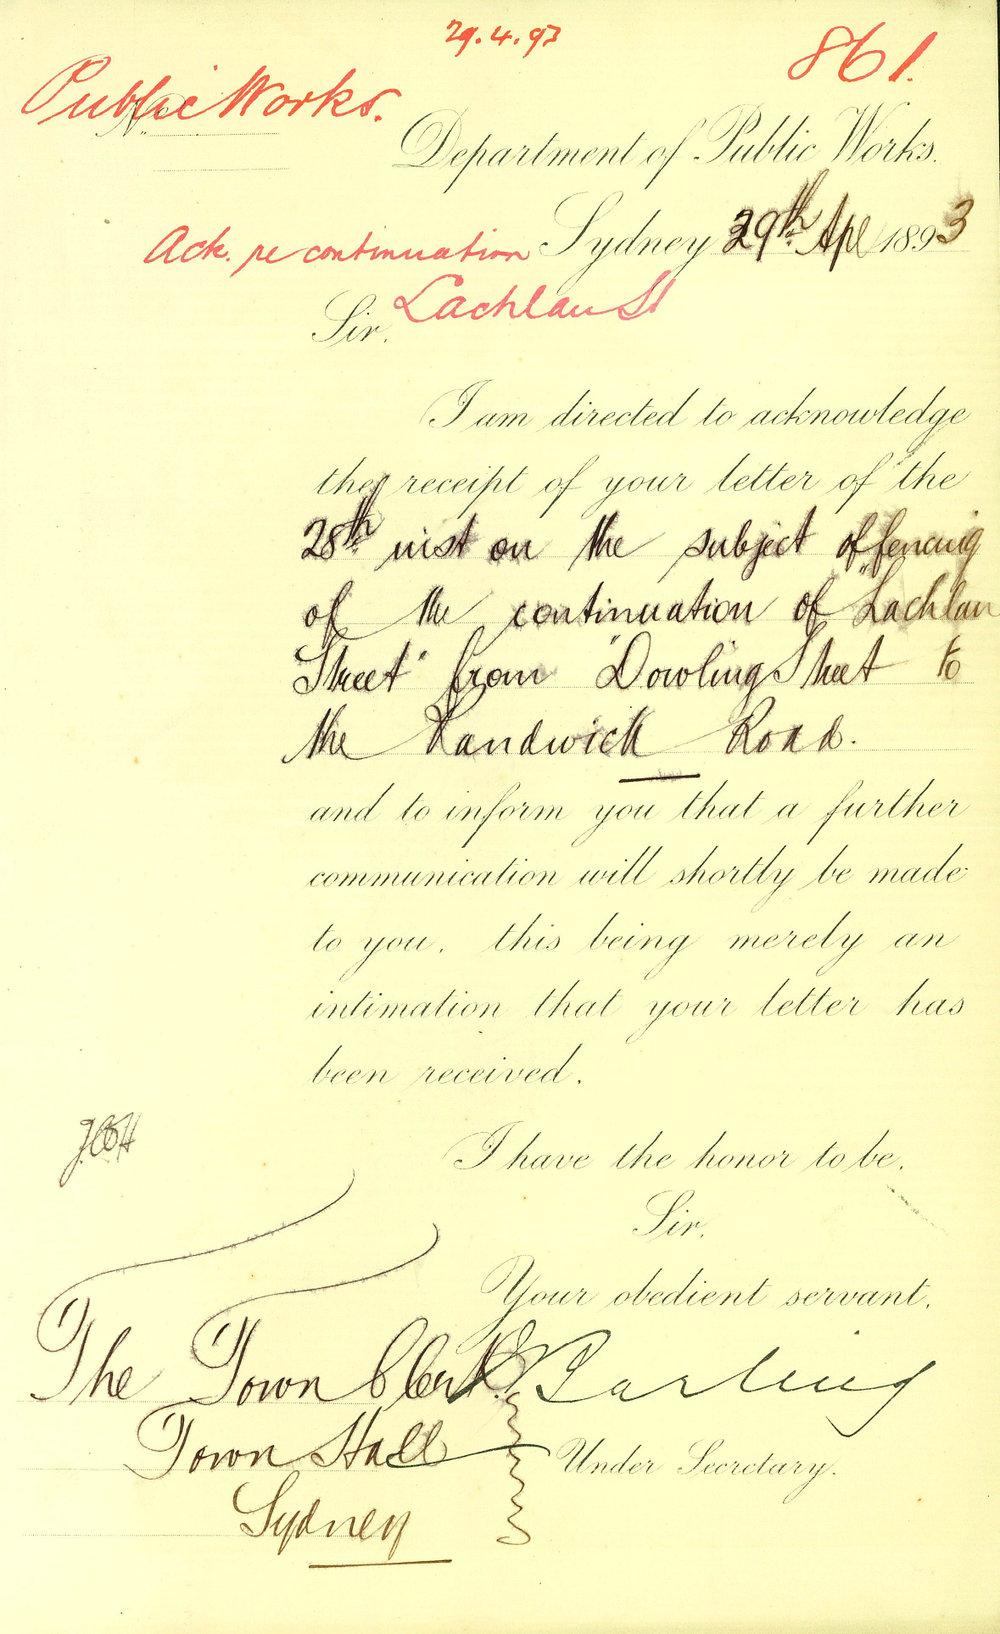 29.4.93
861.
Public Works.
No
Department of Public Works.
Sydney 29th Apl 1893
Ack. re continuation
Lachlan St
Sir,
I am directed to acknowledge
the receipt of your letter of the
28th inst on the subject of fencing
of the continuation of "Lachlan
Street" from "Dowling Street to
the Randwick Road.
and to inform you that a further
communication will shortly be made
to you, this being merely an
intimation that your letter has
been received.
I have the honor to be,
Sir,
Your obedient servant,
The Town Clerk.
Town Hall
Sydney
Under Secretary.